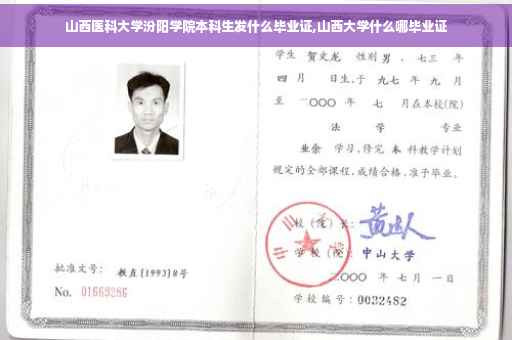 山西医科大学汾阳学院本科生发什么毕业证,山西大学什么哪毕业证
学生 贺文龙 性别 男 , 七三 年
四 月 日生,于 九七 年 九 月
至 二〇〇〇 年 七 月在本校(院)
法 学 专业
业余 学习,修完 本 科教学计划
规定的全部课程,成绩合格,准予毕业。
校(院)长:
学校(院): 中山大学
二〇〇〇 年 七 月 一 日
学校编号: 0032482
批准文号: 教直[1993]8号
No. 01669286